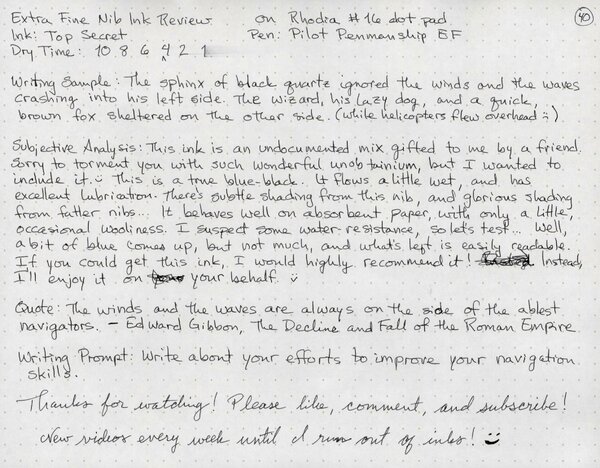 Extra Fine Nib Ink Review on Rhodia #16 dot pad 40
Ink: Top Secret Pen: Pilot Penmanship EF
Dry Time: 10 8 6 4 2 1
Writing Sample: The sphinx of black quartz ignored the winds and the waves
crashing into his left side. The wizard, his lazy dog, and a quick,
brown fox sheltered on the other side. (while helicopters flew overhead :)
Subjective Analysis: This ink is an undocumented mix gifted to me by a friend.
Sorry to torment you with such wonderful unobtainium, but I wanted to
include it. :) This is a true blue-black. It flows a little wet, and has
excellent lubrication. There's subtle shading from this nib, and glorious shading
from fatter nibs... It behaves well on absorbent paper, with only a little,
occasional wooliness. I suspect some water-resistance, so let's test... Well,
a bit of blue comes up, but not much, and what's left is easily readable.
If you could get this ink, I would highly recommend it! Instead,
I'll enjoy it on your behalf. :)
Quote: The winds and the waves are always on the side of the ablest
navigators. - Edward Gibbon, The Decline and Fall of the Roman Empire
Writing Prompt: Write about your efforts to improve your navigation
skills.
Thanks for watching! Please like, comment, and subscribe!
New videos every week until I run out of inks! :)